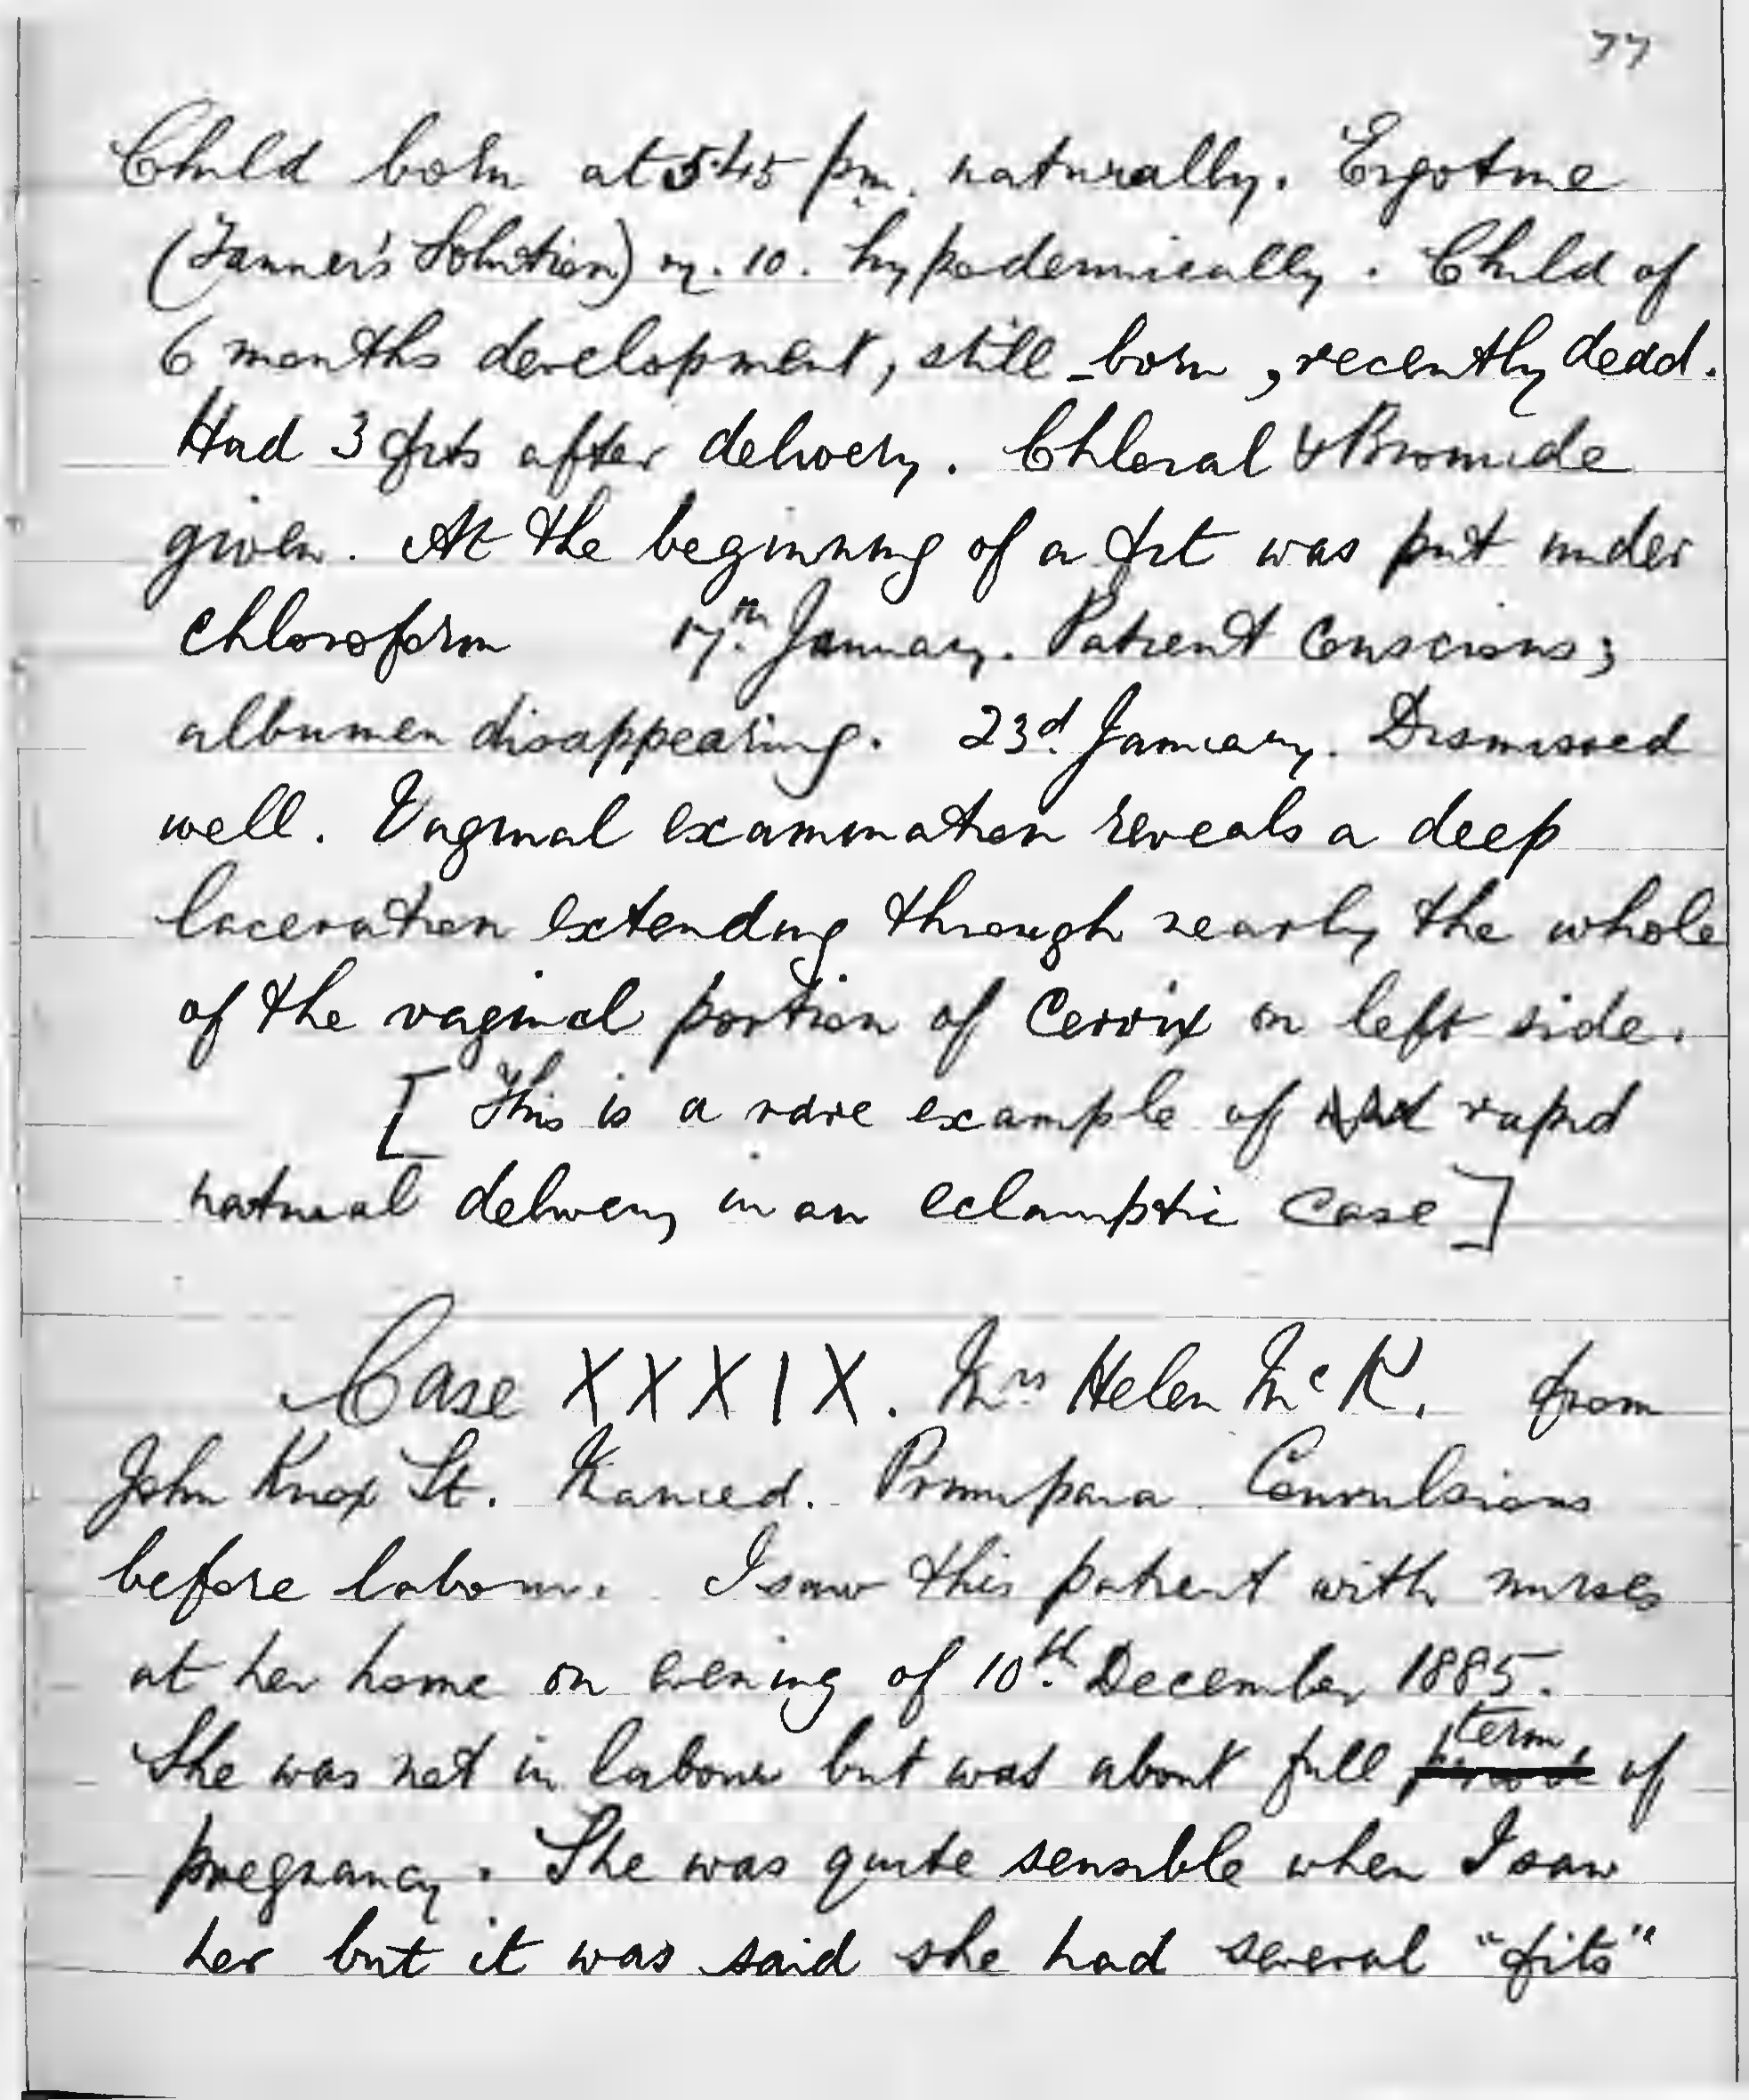 77
Child born at 5.45 pm. naturally. Ergotine
(Tanner's Solution) m. 10. hypodermically. Child of
6 months development, still-born, recently dead.
Had 3 fits after delivery. Chloral & Bromide
given. At the beginning of a fit was put under
chloroform 17th January. Patient conscious;
albumen disappearing. 23d. January. Dismissed
well. Vaginal examination reveals a deep
laceration extending through nearly the whole
of the vaginal portion of Cervix on left side.
[This is a rare example of rapid
natural delivery in an eclamptic case]
Case XXXIX. Mrs Helen McK. from
John Knox St. Married. Primipara Convulsions
before labour. I saw this patient with nurses
at her home on evening of 10th. December 1885.
She was not in labour but was about full term of
pregnancy. She was quite sensible when I saw
her but it was said she had several "fits"